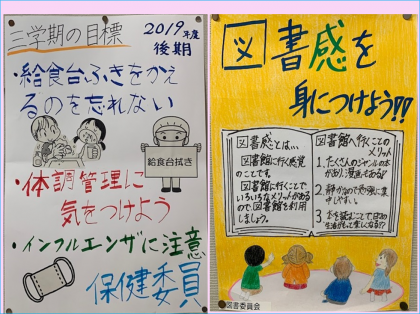 三学期の目標
2019年度
後期
・給食台ふきをかえ
るのを忘れない
給食台拭き
・体調管理に
気をつけよう
・インフルエンザに注意
保健委員
図書感を
身につけよう!!
図書感とは…
図書館に行く感覚
のことです。
図書館に行くことで
いろいろなメリットがある
ので、図書館を利用
しましょう。
図書館に行くことの
メリット
1.たくさんのジャンルの本
があり、漫画もある!!
2.静かなので勉強に集
中しやすい。
3.本を読むことで日々の
生活がもっと楽しくなる??
図書委員会